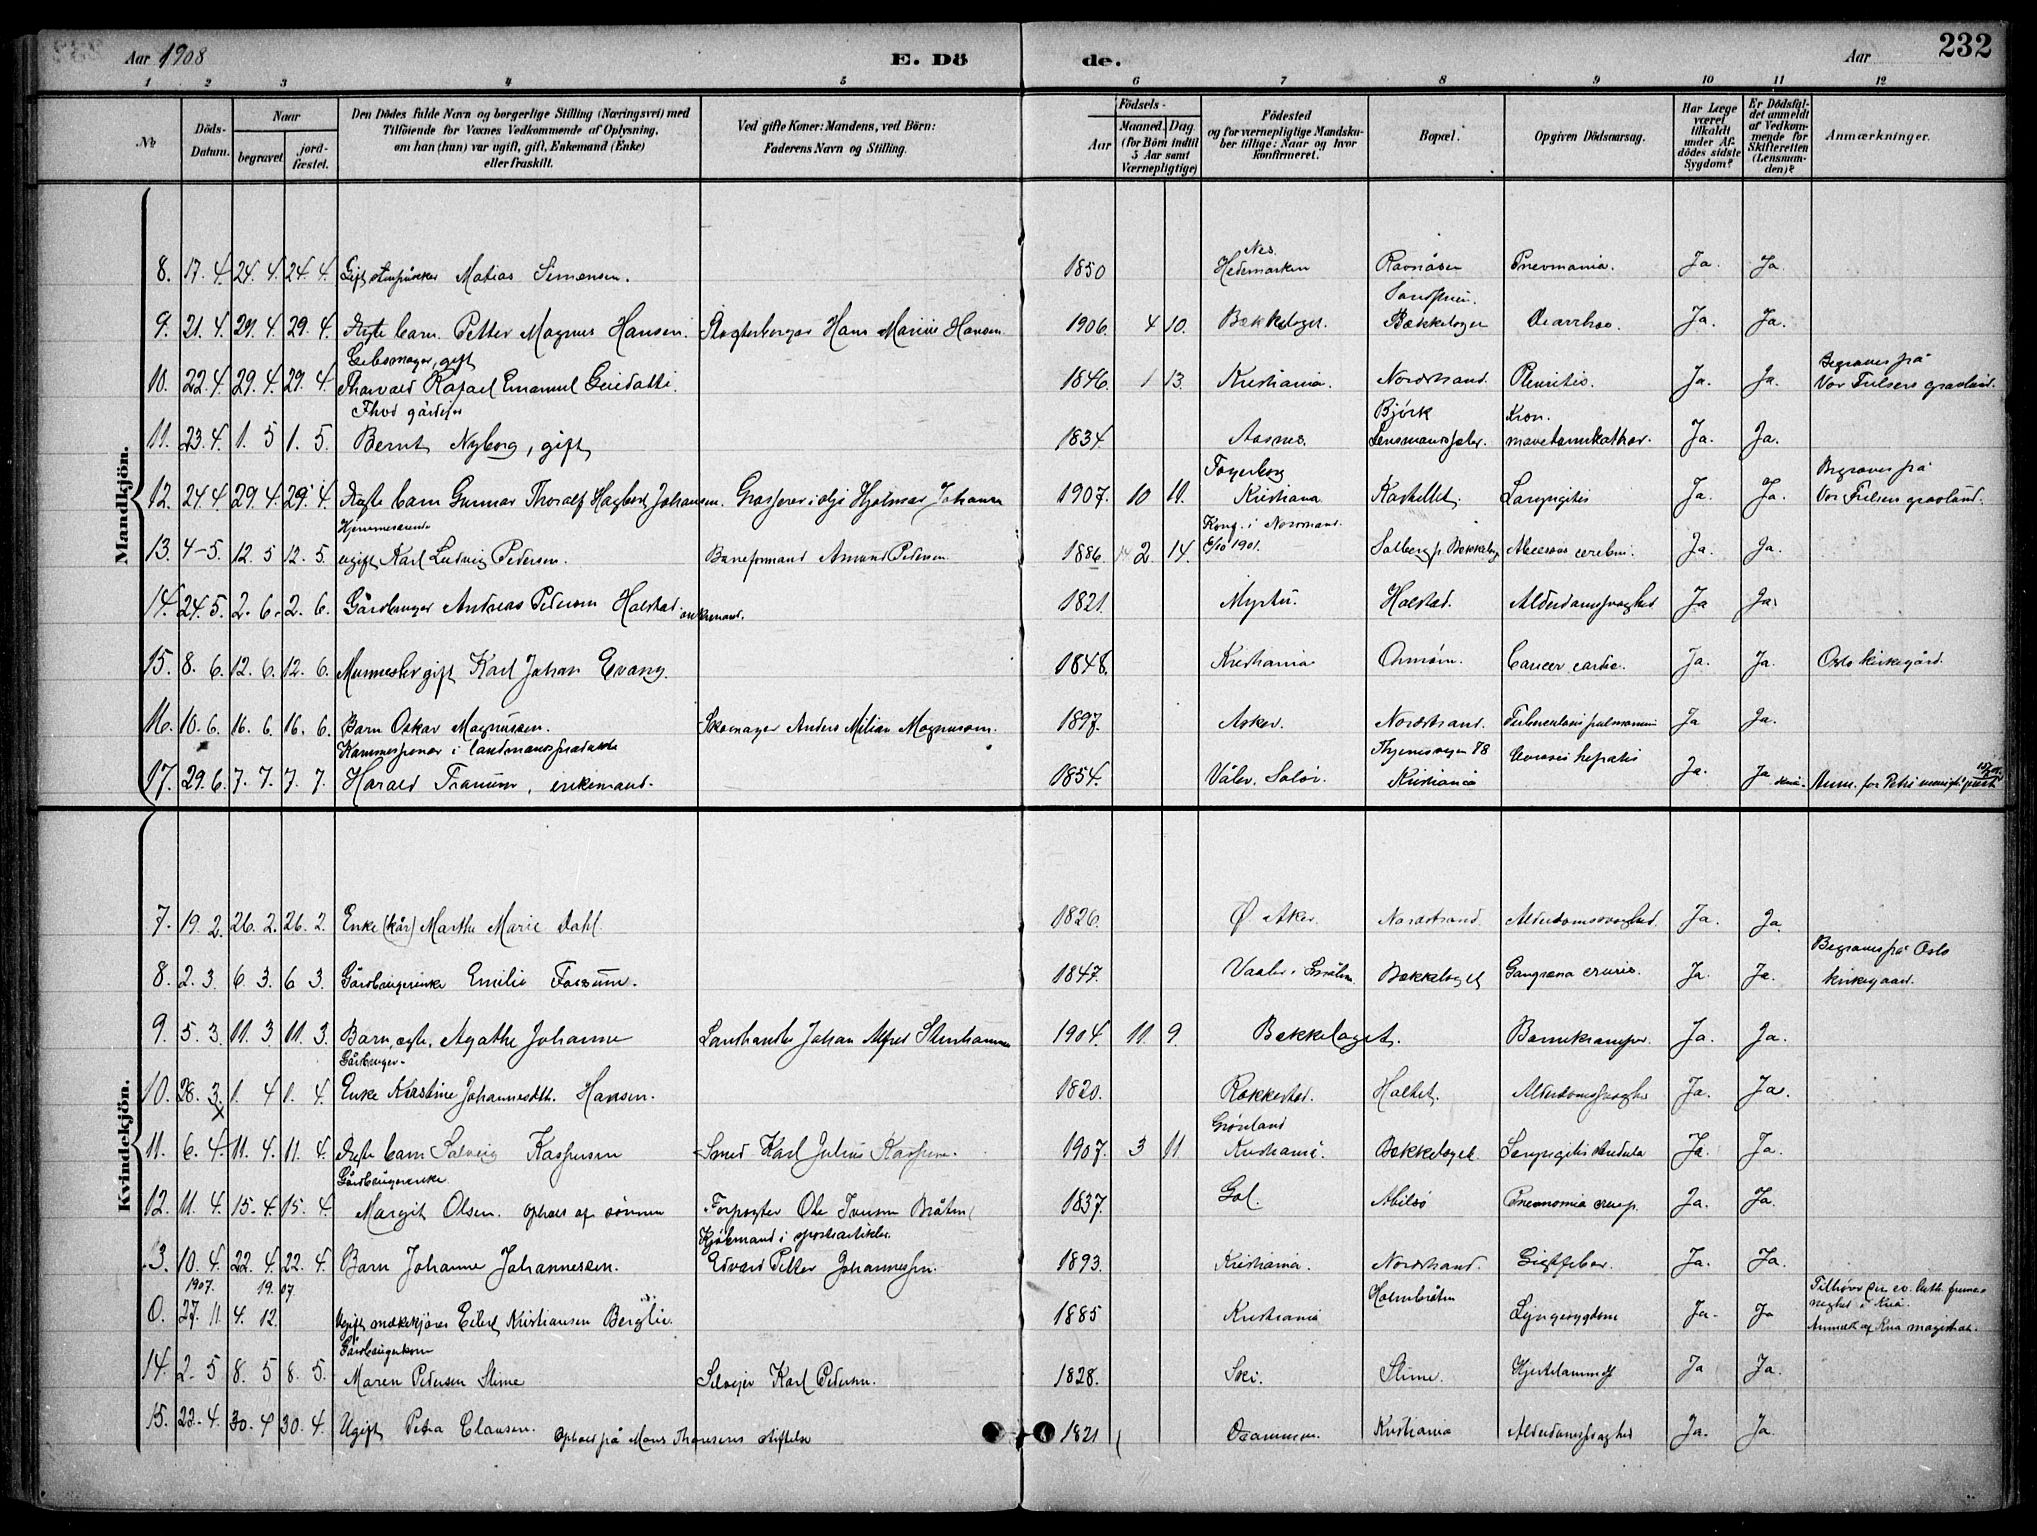 Aar 1908 E. Dö de. Aar 232
1 2 3 4 5 6 7 8 9 10 11 12
No Döds-Datum. Naar begravet jordfæstet. Den Dödes fulde Navn og borgerlige Stilling (Næringsvei) med Tilföiende for Voxnes Vedkommende af Oplysning, om han (hun) var ugift, gift, Enkemand (Enke) eller fraskilt. Ved gifte Koner: Mandens, ved Börn: Faderens Navn og Stilling. Födsels- Aar Maaned. Dag (for Börn indtil 5 Aar samt Værnepligtige) Födested og for værnepligtige Mandskaber tillige: Naar og hvor konfirmeret. Bopæl. Opgiven Dödsaarsag. Har Læge været tilkaldt under Afdödes sidste Sygdom? Er Dödsfaldet anmeldt af Vedkommende for Skifteretten (Lensmanden)? Anmærkninger.
Mandkjön.
8. 17. 4. 24. 4. 24. 4. Gift Matias Simensen. 1850 Nes Hedemarken Ravnåsen Pnevmonia. Ja. Ja
9. 21. 4. 29. 4. 29. 4. Ægte barn Petter Magnus Hansen. Hans Marius Hansen 1906 4 10. Bækkelaget. Bækkelaget Ja. Ja.
10. 22. 4. 29. 4. 29. 4. gift Thorvald Rafael Emanuel 1846. 1 13. Kristiania. Nordstrand. Pleuritis. Ja. Ja. Begraves på Vor Frelsers gravlund.
11. 23. 4. 1. 5 1. 5. Bernt Nyborg, gift 1834 Aasnes. Bjørk Kron. Ja. Ja.
12. 24. 4. 29. 4. 29. 4 Ægte barn Gunnar Thoralf Hagbart Johansen. Hjalmar Johansen 1907. 10 11. Fagerborg Kristiania Kastellet. Laryngitis Ja. Ja. Begraves på Vor Frelsers gravlund.
13. 4-5. 12. 5 12. 5. Hjemmeværende ugift Karl Ludvig Pedersen. Baneformand Amund Pedersen 1886. 2. 14. 1901. Solberg p. Bækkelag Abscessus cerebri. Ja. Ja.
14. 24. 5. 2. 6. 2. 6. Gårdbruger Andreas Pedersen Holstad. enkemand. 1821. Holstad. Alderdomssvaghed Ja Ja.
15. 8. 6. 12. 6. 12. 6. Murmester gift Karl Johan Evang. 1848. Kristiania Ormøen. Cancer cardia. Ja. Ja. Oslo kirkegård.
16. 10. 6. 16. 6. 16. 6. Barn Oskar Magnussen. Skomager Anders Milian Magnussen. 1897. Asker. Nordstrand. Tuberkulosis pulmonum Ja Ja.
17. 29. 6. 7. 7. 7. 7. Harald Franum, enkemand. 1854. Våler. Solør. Kristiania hepatis Ja. Ja
Kvindekjön.
7. 19. 2. 26. 2. 26. 2. Enke (kår) Marthe Marie Dahl. 1826. Ø. Aker. Nordstrand Alderdomssvaghed. Ja. Ja.
8. 2. 3. 6 3. 6 3. Gårdbrugerenke Emilie Fossum. 1847. Vaaler i Bækkelaget Gangræna cruris. Ja. Ja. Begraves på Oslo kirkegaard.
9. 5. 3. 11. 3 11. 3. Barn, ægte, Agathe Johanne Landhandler Johan Alfred Stenhammer 1904. 11. 9. Bækkelaget. Barnekramper. Ja. Ja.
10. 28. 3. 1. 4 1. 4. Gårdbruger- Enke Kirstine Johannesdtr. Hansen. 1820. Rakkestad. Holtet. Alderdomssvaghed Ja. Ja.
11. 6. 4. 11. 4. 11. 4. Ægte barn Solveig Kaspersen Smed Karl Julius Kaspersen. 1907. 3 11. Grønland Kristiania. Bækkelaget. Laryngitis stridula Ja. Ja.
12. 11. 4. 15. 4. 15. 4. Gårdbrugerenke Margit Olsen. ophold af sønnen Forpagter Ole Iversen Bråten 1837. Gol. Abilsø Pneumonia crup. Ja. Ja.
13. 10. 4. 22. 4. 22. 4. Barn Johanne Johannessen. Kjøbmand i sportsartikler. Edvard Petter Johannessen. 1893. Kristiania. Nordstrand. Gigtfeber. Ja. Ja.
0. 1907. 27. 11. 1907 4. 12. Ugift Kristiansen Berglie. 1885 Kristiania Holmbråten Lungesygdom Ja. Ja Tilhører ev. luth. frimenighed i Kria. Anmeldt af Kria magistrat.
14. 2. 5 8. 5 8. 5. Gårdbrugerkone Maren Pedersen Slime Selveier Karl Pedersen. 1828. Ski. Slime. Hjertelammelse Ja Ja.
15. 22. 4. 30. 4 30. 4. Ugift Petra Clausen. Ophold på Mons Thorsens stiftelse 1821 Drammen. Kristiania Alderdomssvaghed Ja. Ja.